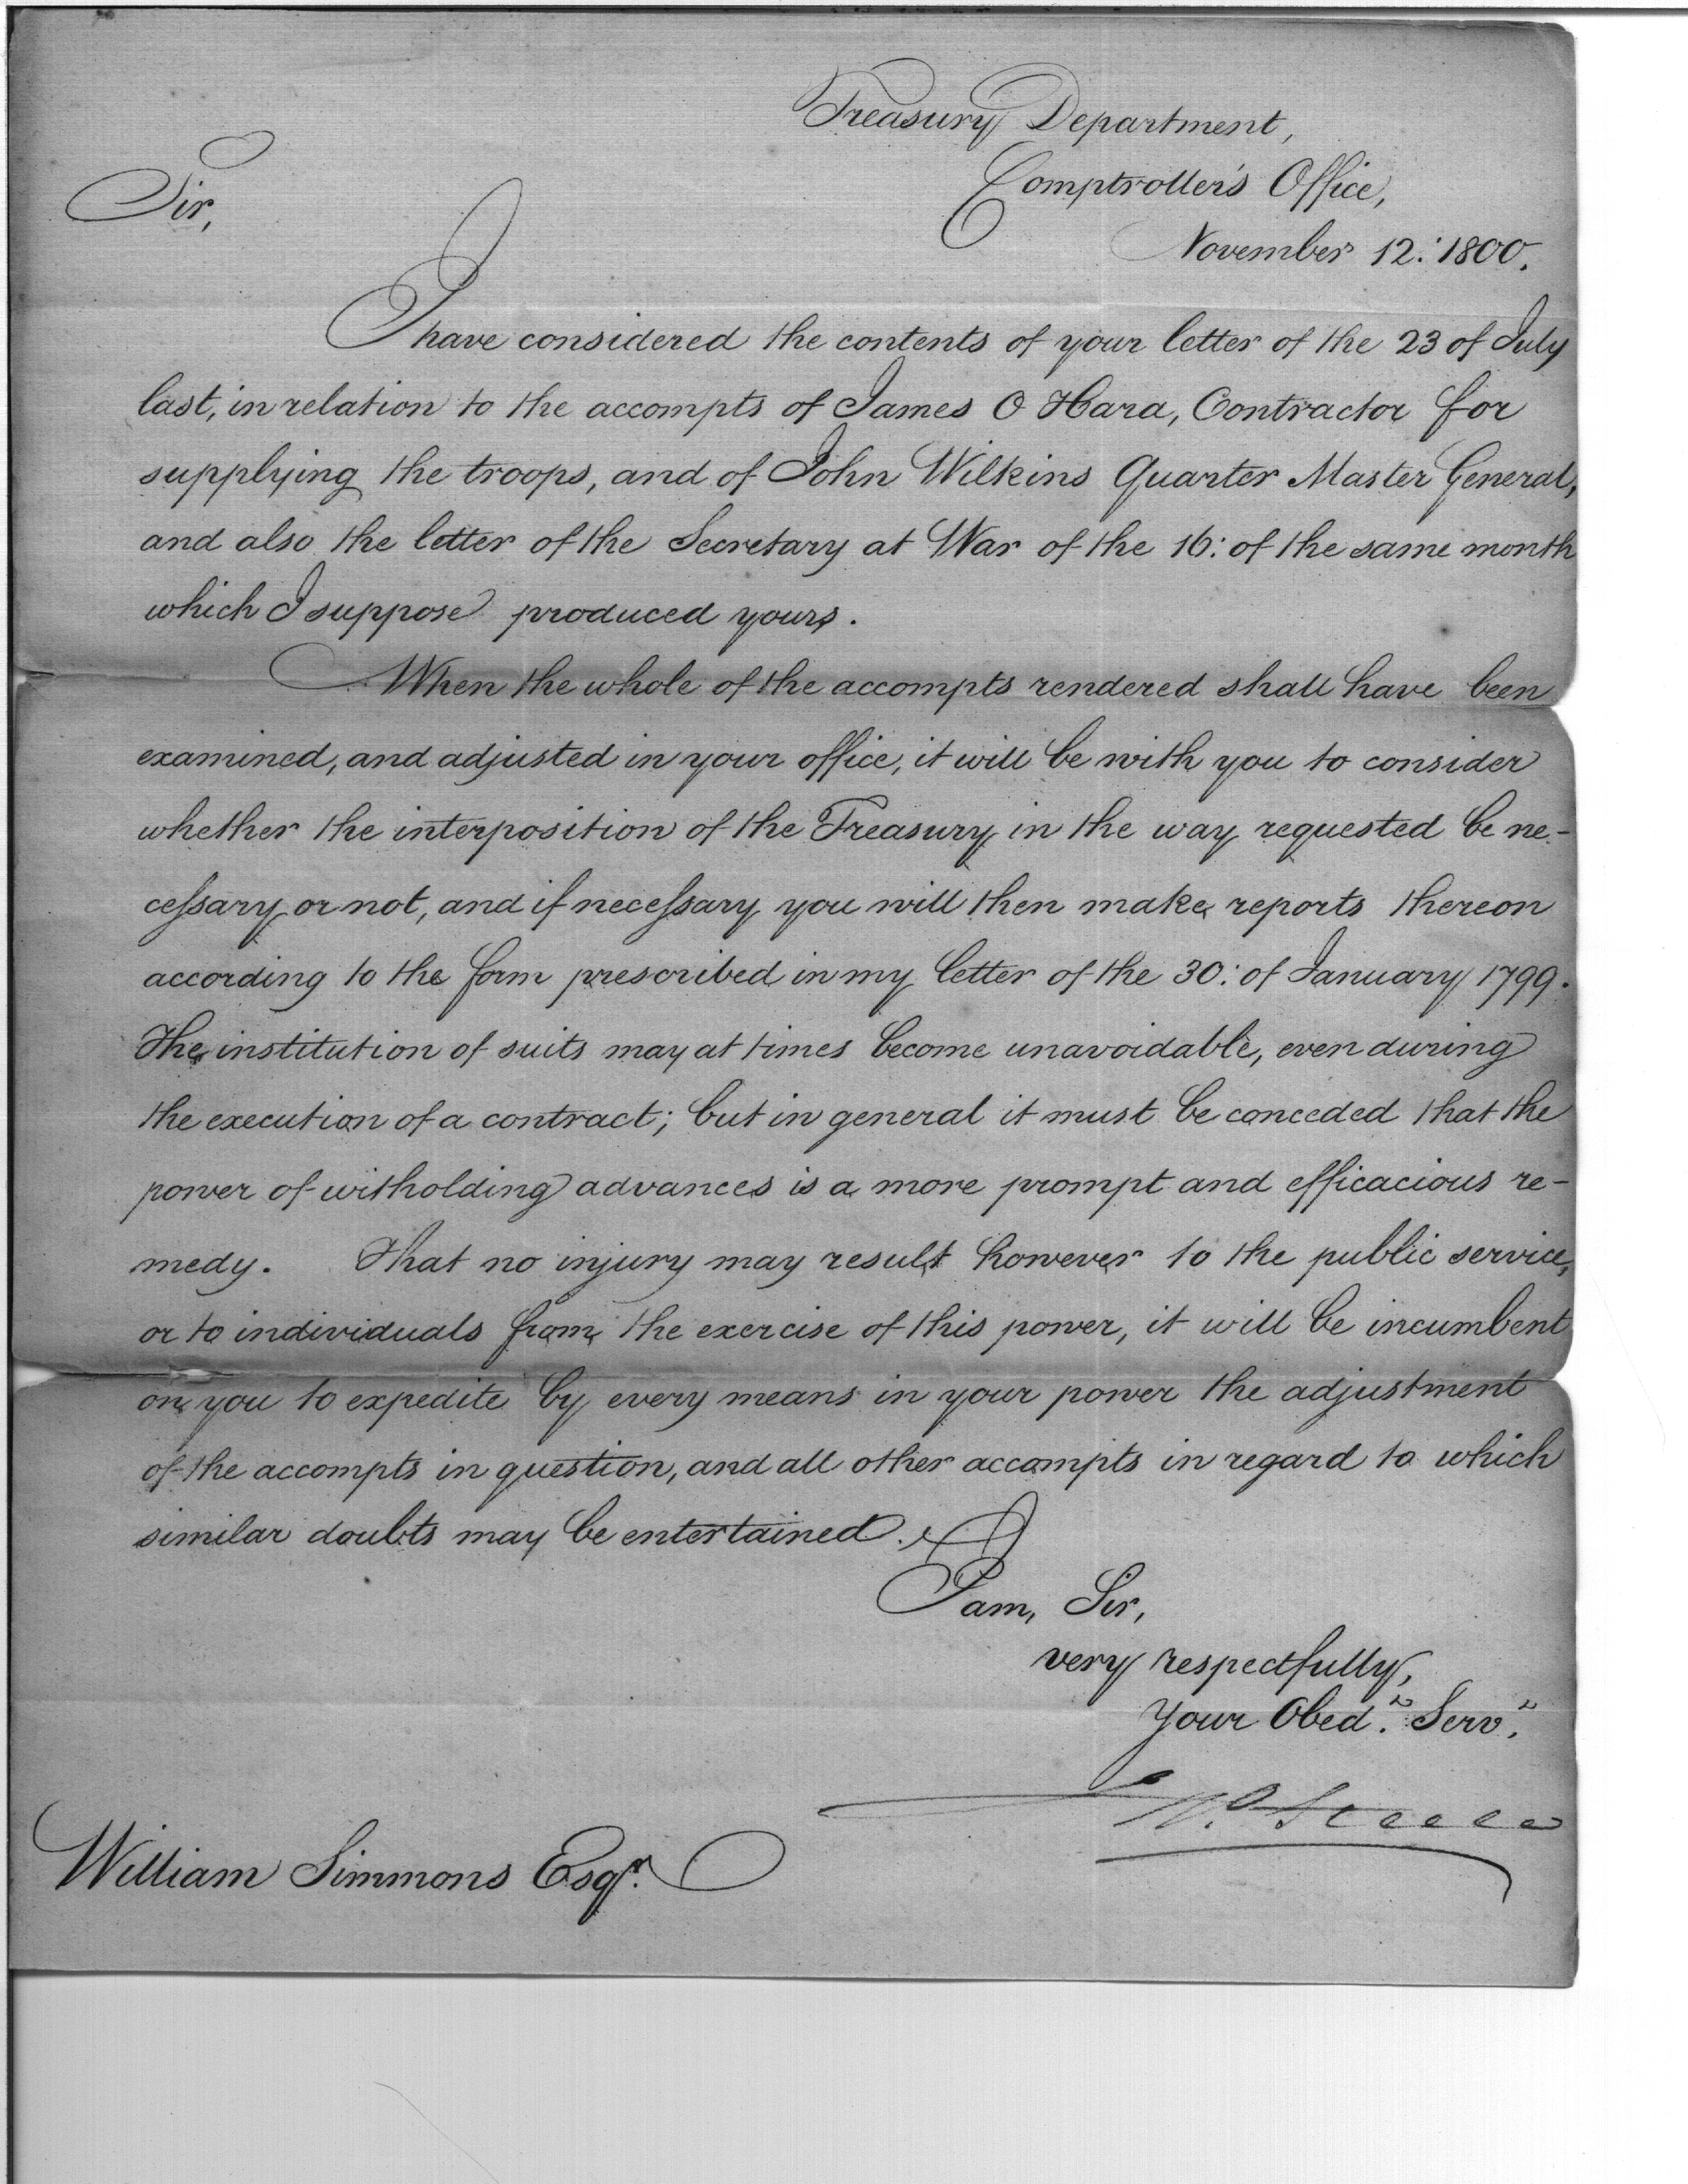 Treasury Department,
Comptroller's Office,
Sir,
November 12: 1800.
I have considered the contents of your letter of the 23 of July
last, in relation to the accompts of James O Hara, Contractor for
supplying the troops, and of John Wilkins Quarter Master General,
and also the letter of the Secretary at War of the 16: of the same month
which I suppose produced yours.
When the whole of the accompts rendered shall have been
examined, and adjusted in your office, it will be with you to consider
whether the interposition of the Treasury in the way requested be ne-
ceſsary or not, and if neceſsary you will then make reports thereon
according to the form prescribed in my letter of the 30: of January 1799.
The institution of suits may at times become unavoidable, even during
the execution of a contract; but in general it must be conceded that the
power of witholding advances is a more prompt and efficacious re-
medy. That no injury may result however to the public service,
or to individuals from the exercise of this power, it will be incumbent
on you to expedite by every means in your power the adjustment
of the accompts in question, and all other accompts in regard to which
similar doubts may be entertained.
I am, Sir,
very respectfully,
Your Obed.t Serv.t
Jno. Steele
William Simmons Esqr.